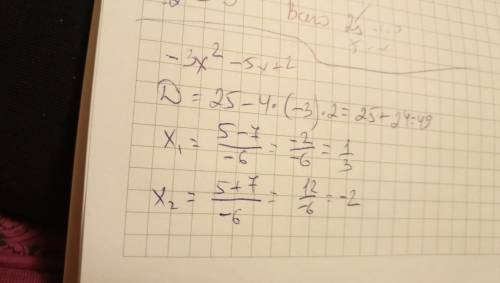 Всего 25
-3x² -5x+2
D = 25-4·(-3)·2= 25+24=49
x₁ = (5-7)/(-6) = (-2)/(-6) = 1/3
x₂ = (5+7)/(-6) = 12/(-6) = -2